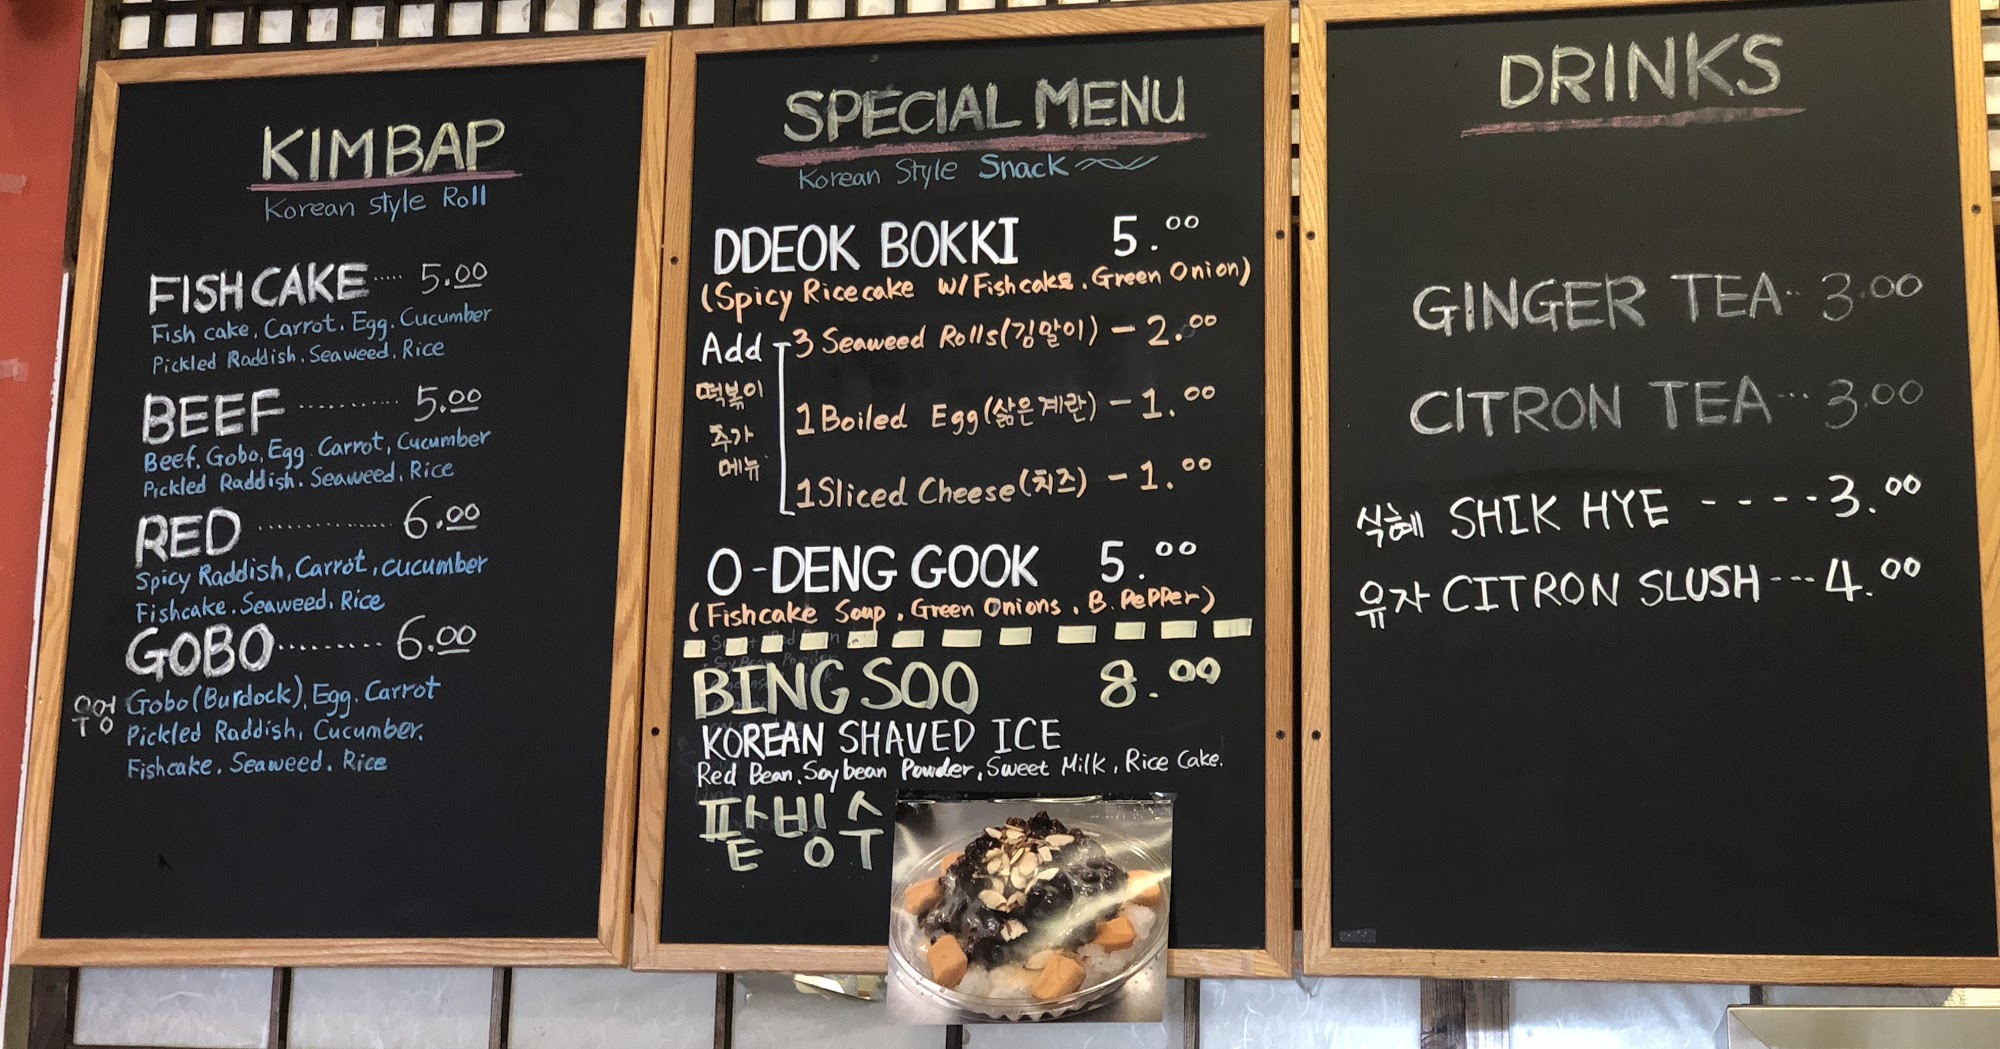 KIMBAP
Korean Style Roll
FISH CAKE ..... 5.00
Fish cake, Carrot. Egg. Cucumber
Pickled Raddish. Seaweed. Rice
BEEF ........... 5.00
Beef. Gobo, Egg. Carrot, Cucumber
Pickled Raddish. Seaweed. Rice
RED ............. 6.00
Spicy Raddish, Carrot, cucumber
Fishcake. Seaweed. Rice
GOBO ......... 6.00
우엉 Gobo (Burdock), Egg. Carrot
Pickled Raddish, Cucumber.
Fishcake. Seaweed. Rice
SPECIAL MENU
Korean Style Snack
DDEOK BOKKI 5.00
(Spicy Ricecake w/Fishcake. Green Onion)
Add 3 Seaweed Rolls (김말이) - 2.00
떡볶이
추가
메뉴
1 Boiled Egg (삶은계란) - 1.00
1 Sliced Cheese (치즈) - 1.00
O-DENG GOOK 5.00
(Fishcake Soup, Green Onions, B. PePPer)
BING SOO 8.00
KOREAN SHAVED ICE
Red Bean, Soybean Powder, Sweet Milk, Rice Cake.
팥빙수
DRINKS
GINGER TEA .. 3.00
CITRON TEA ... 3.00
식혜 SHIK HYE ----- 3.00
유자 CITRON SLUSH --- 4.00